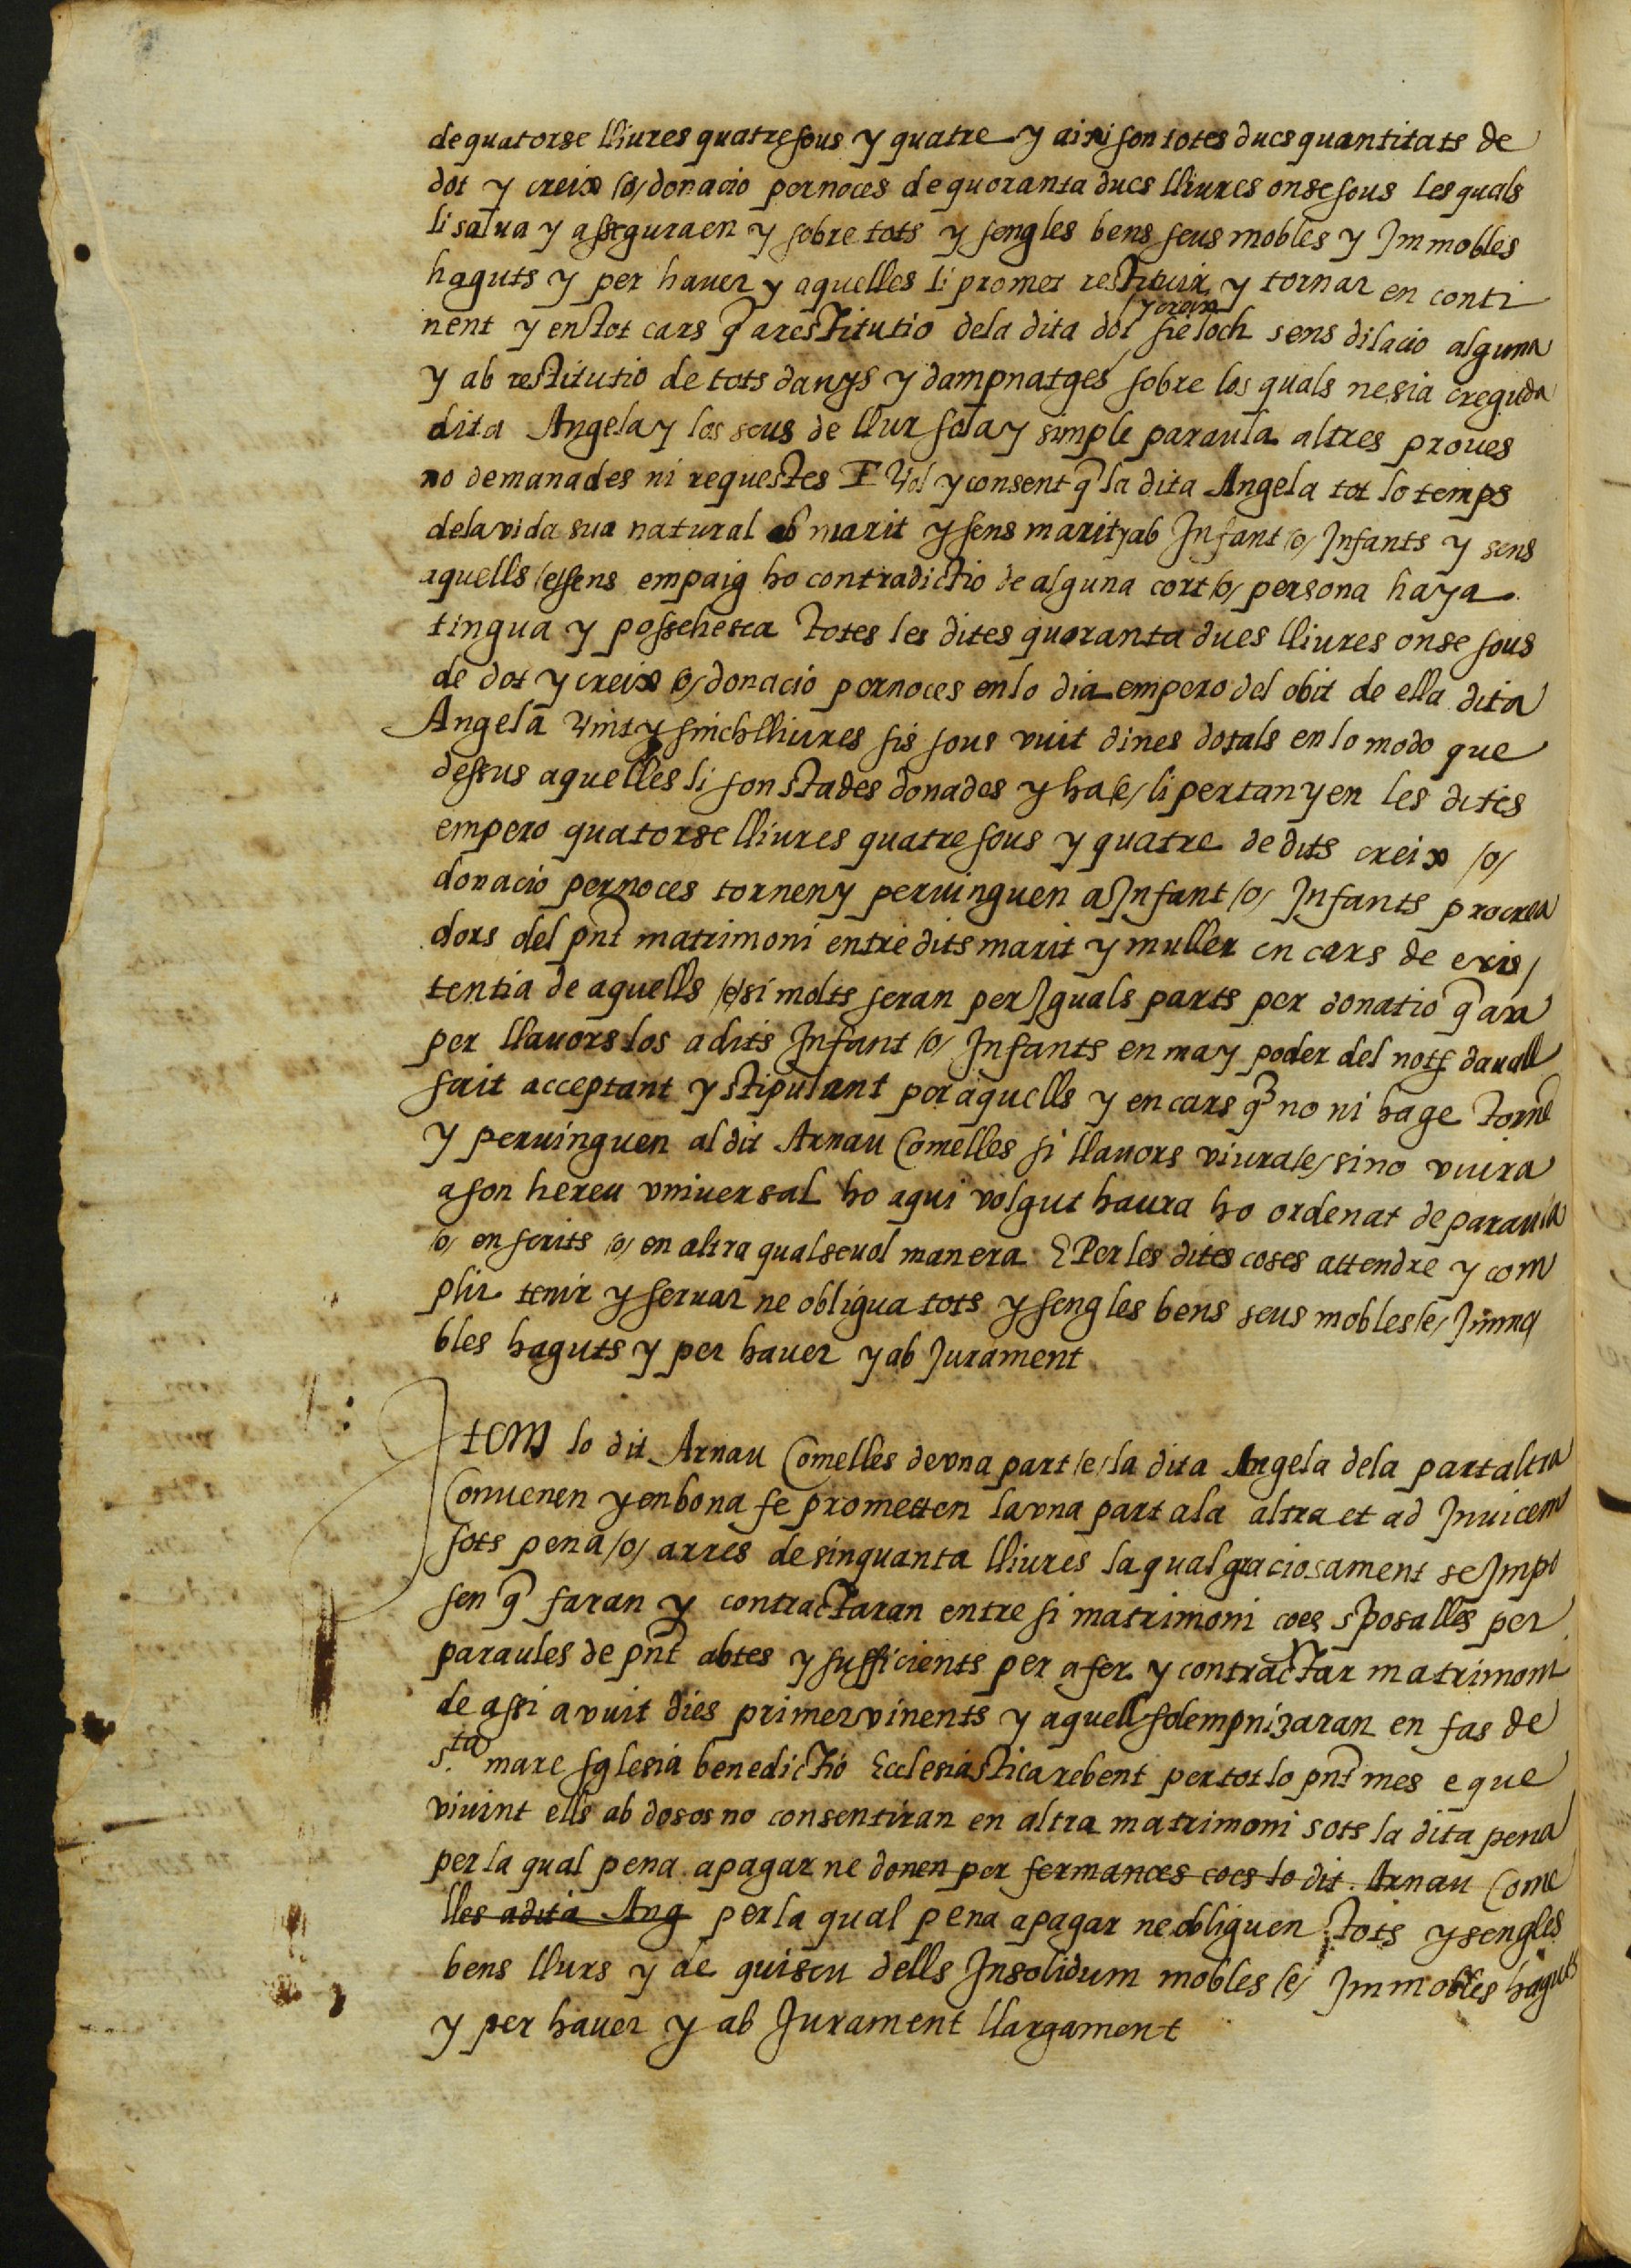 de quatorse lliures quatre sous y quatre y aixi son totes dues quantitats de
dot y creix /o/ donacio per noces de quoranta dues lliures onse sous les quals
li salua y asseguraen y sobre tots y sengles bens seus mobles y Immobles
haguts y per hauer y aquelles li promet restituir y tornar en conti
nent y en tot cars q̃ a restitutio dela dita dot y creix sie loch sens dilacio alguna
y ab restitutio de tots danys y dampnatges sobre los quals ne sia creguda
dita Angela y los seus de llur sola y simple paraula altres proues
no demanades ni requestes E Vol y consent q̃ la dita Angela tot lo temps
dela vida sua natural ab marit y sens marit y ab Infant /o/ Infants y sens
aquells /e/ sens empaig ho contradictio de alguna cort /o/ persona haya
tingua y possehesca totes les dites quoranta dues lliures onse sous
de dot y creix /o/ donacio per noces en lo dia empero del obit de ella dita
Angela Vint y sinch lliures sis sous vuit dines dotals en lo modo que
dessus aquelles li son stades donades y ha /e/ li pertanyen les dites
empero quatorse lliures quatre sous y quatre de dits creix /o/
donacio per noces torneny peruinguen a Infant /o/ Infants procrea
dors del pnt̃ matrimoni entre dits marit y muller en cars de exis/
tentia de aquells /e/ si molts seran per Iguals parts per donatio q̃ ara
per llauors los a dits Infant /o/ Infants en ma y poder del not̃ dauall
scrit acceptant y stipulant per aquells y en cars q̃ no ni hage tornẽ
y peruinguen al dit Arnau Comelles si llauors viura /e/ sino viura
a son hereu vniuersal ho aqui volgut haura ho ordenat de paraula
/o/ en scrits /o/ en altra qualseuol manera E Per les dites coses attendre y com
plir tenir y seruar ne obligua tots y sengles bens seus mobles /e/ Immo
bles haguts y per hauer y ab Jurament
Item lo dit Arnau Comelles de vna part /e/ la dita Angela dela part altra
Conuenen y en bona fe prometten la vna part ala altra et ad Inuicem
sots pena /o/ arres de sinquanta lliures la qual graciosament se Impo
sen q̃ faran y contractaran entre si matrimoni coes sposalles per
paraules de pnt̃ abtes y sufficients per a fer y contractar matrimoni
de assi a vuit dies primer vinents y aquell solempnizaran en fas de
S.ta mare sglesia benedictió Ecclesiastica rebent per tot lo pnt̃ mes e que
viuint ells ab dosos no consentiran en altra matrimoni sots la dita pena
per la qual pena apagar ne donen per fermances coes lo dit Arnau Come
lles a dita Ang per la qual pena apagar ne obliguen tots y sengles
bens llurs y de quiscu dells Insolidum mobles /e/ Immobles haguts
y per hauer y ab Jurament llargament